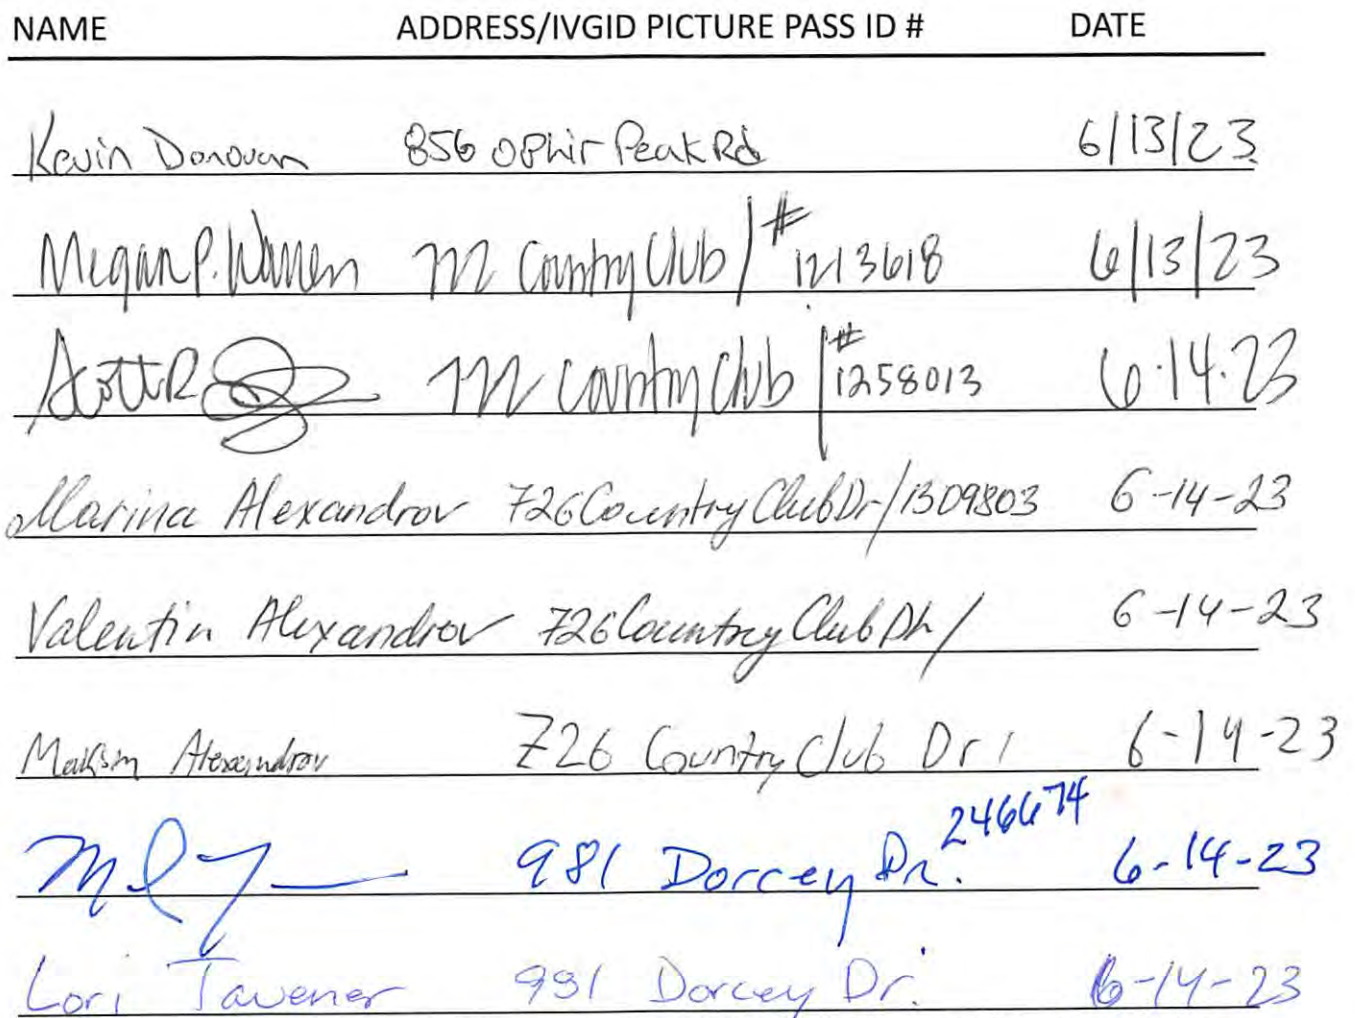 NAME ADDRESS/IVGID PICTURE PASS ID # DATE
Kevin Donovan 856 Ophir Peak Rd 6/13/23
Megan P. Warren 722 Country Club / # 1213618 6/13/23
Scott R 722 Country Club / # 1258013 6.14.23
Marina Alexandrov 726 Country Club Dr/1309803 6-14-23
Valentin Alexandrov 726 Country Club Dr / 6-14-23
Maksim Alexandrov 726 Country Club Dr / 6-14-23
981 Dorcey Dr. 246674 6-14-23
Lori Tavener 981 Dorcey Dr. 6-14-23